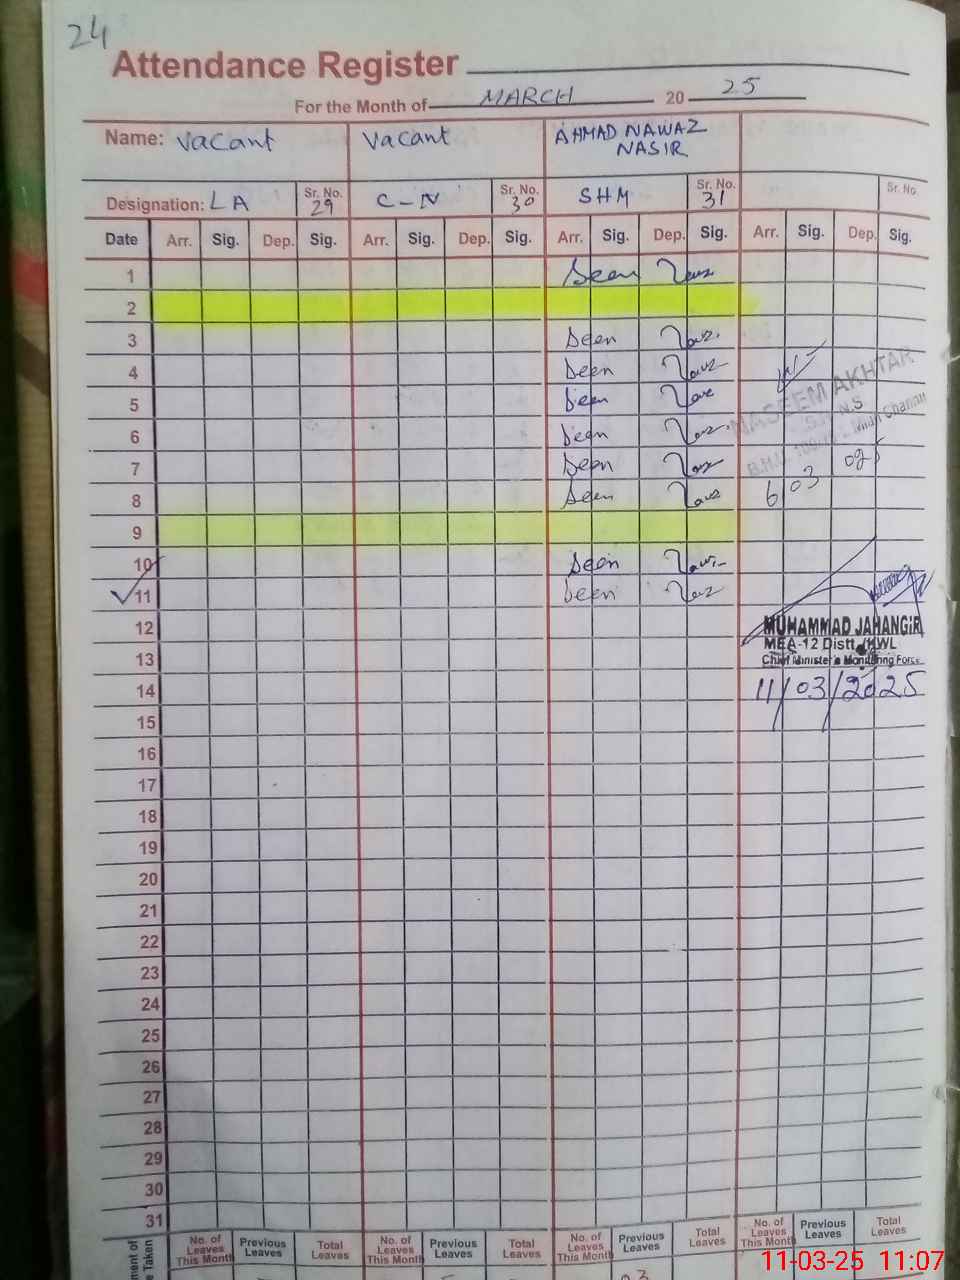 24
Attendance Register
For the Month of MARCH 20 25
Name: Vacant Vacant AHMAD NAWAZ
NASIR
Designation: LA Sr. No. 29 C-N Sr. No. 30 SHM Sr. No. 31 Sr. No.
Date Arr. Sig. Dep. Sig. Arr. Sig. Dep. Sig. Arr. Sig. Dep. Sig. Arr. Sig. Dep. Sig.
1 Seen
2
3 Seen
4 Seen
5 Seen
NASEEM AKHTAR
6 Seen
7 Seen
8 Seen 6 03
9
10 Seen
11 Seen
12 MUHAMMAD JAHANGIR
MEA-12 Distt. KWL
13 Chief Minister's Monitoring Force
14 11/03/2025
15
16
17
18
19
20
21
22
23
24
25
26
27
28
29
30
31
No. of Leaves This Month Previous Leaves Total Leaves No. of Leaves This Month Previous Leaves Total Leaves No. of Leaves This Month Previous Leaves Total Leaves No. of Leaves This Month Previous Leaves Total Leaves
11-03-25 11:07